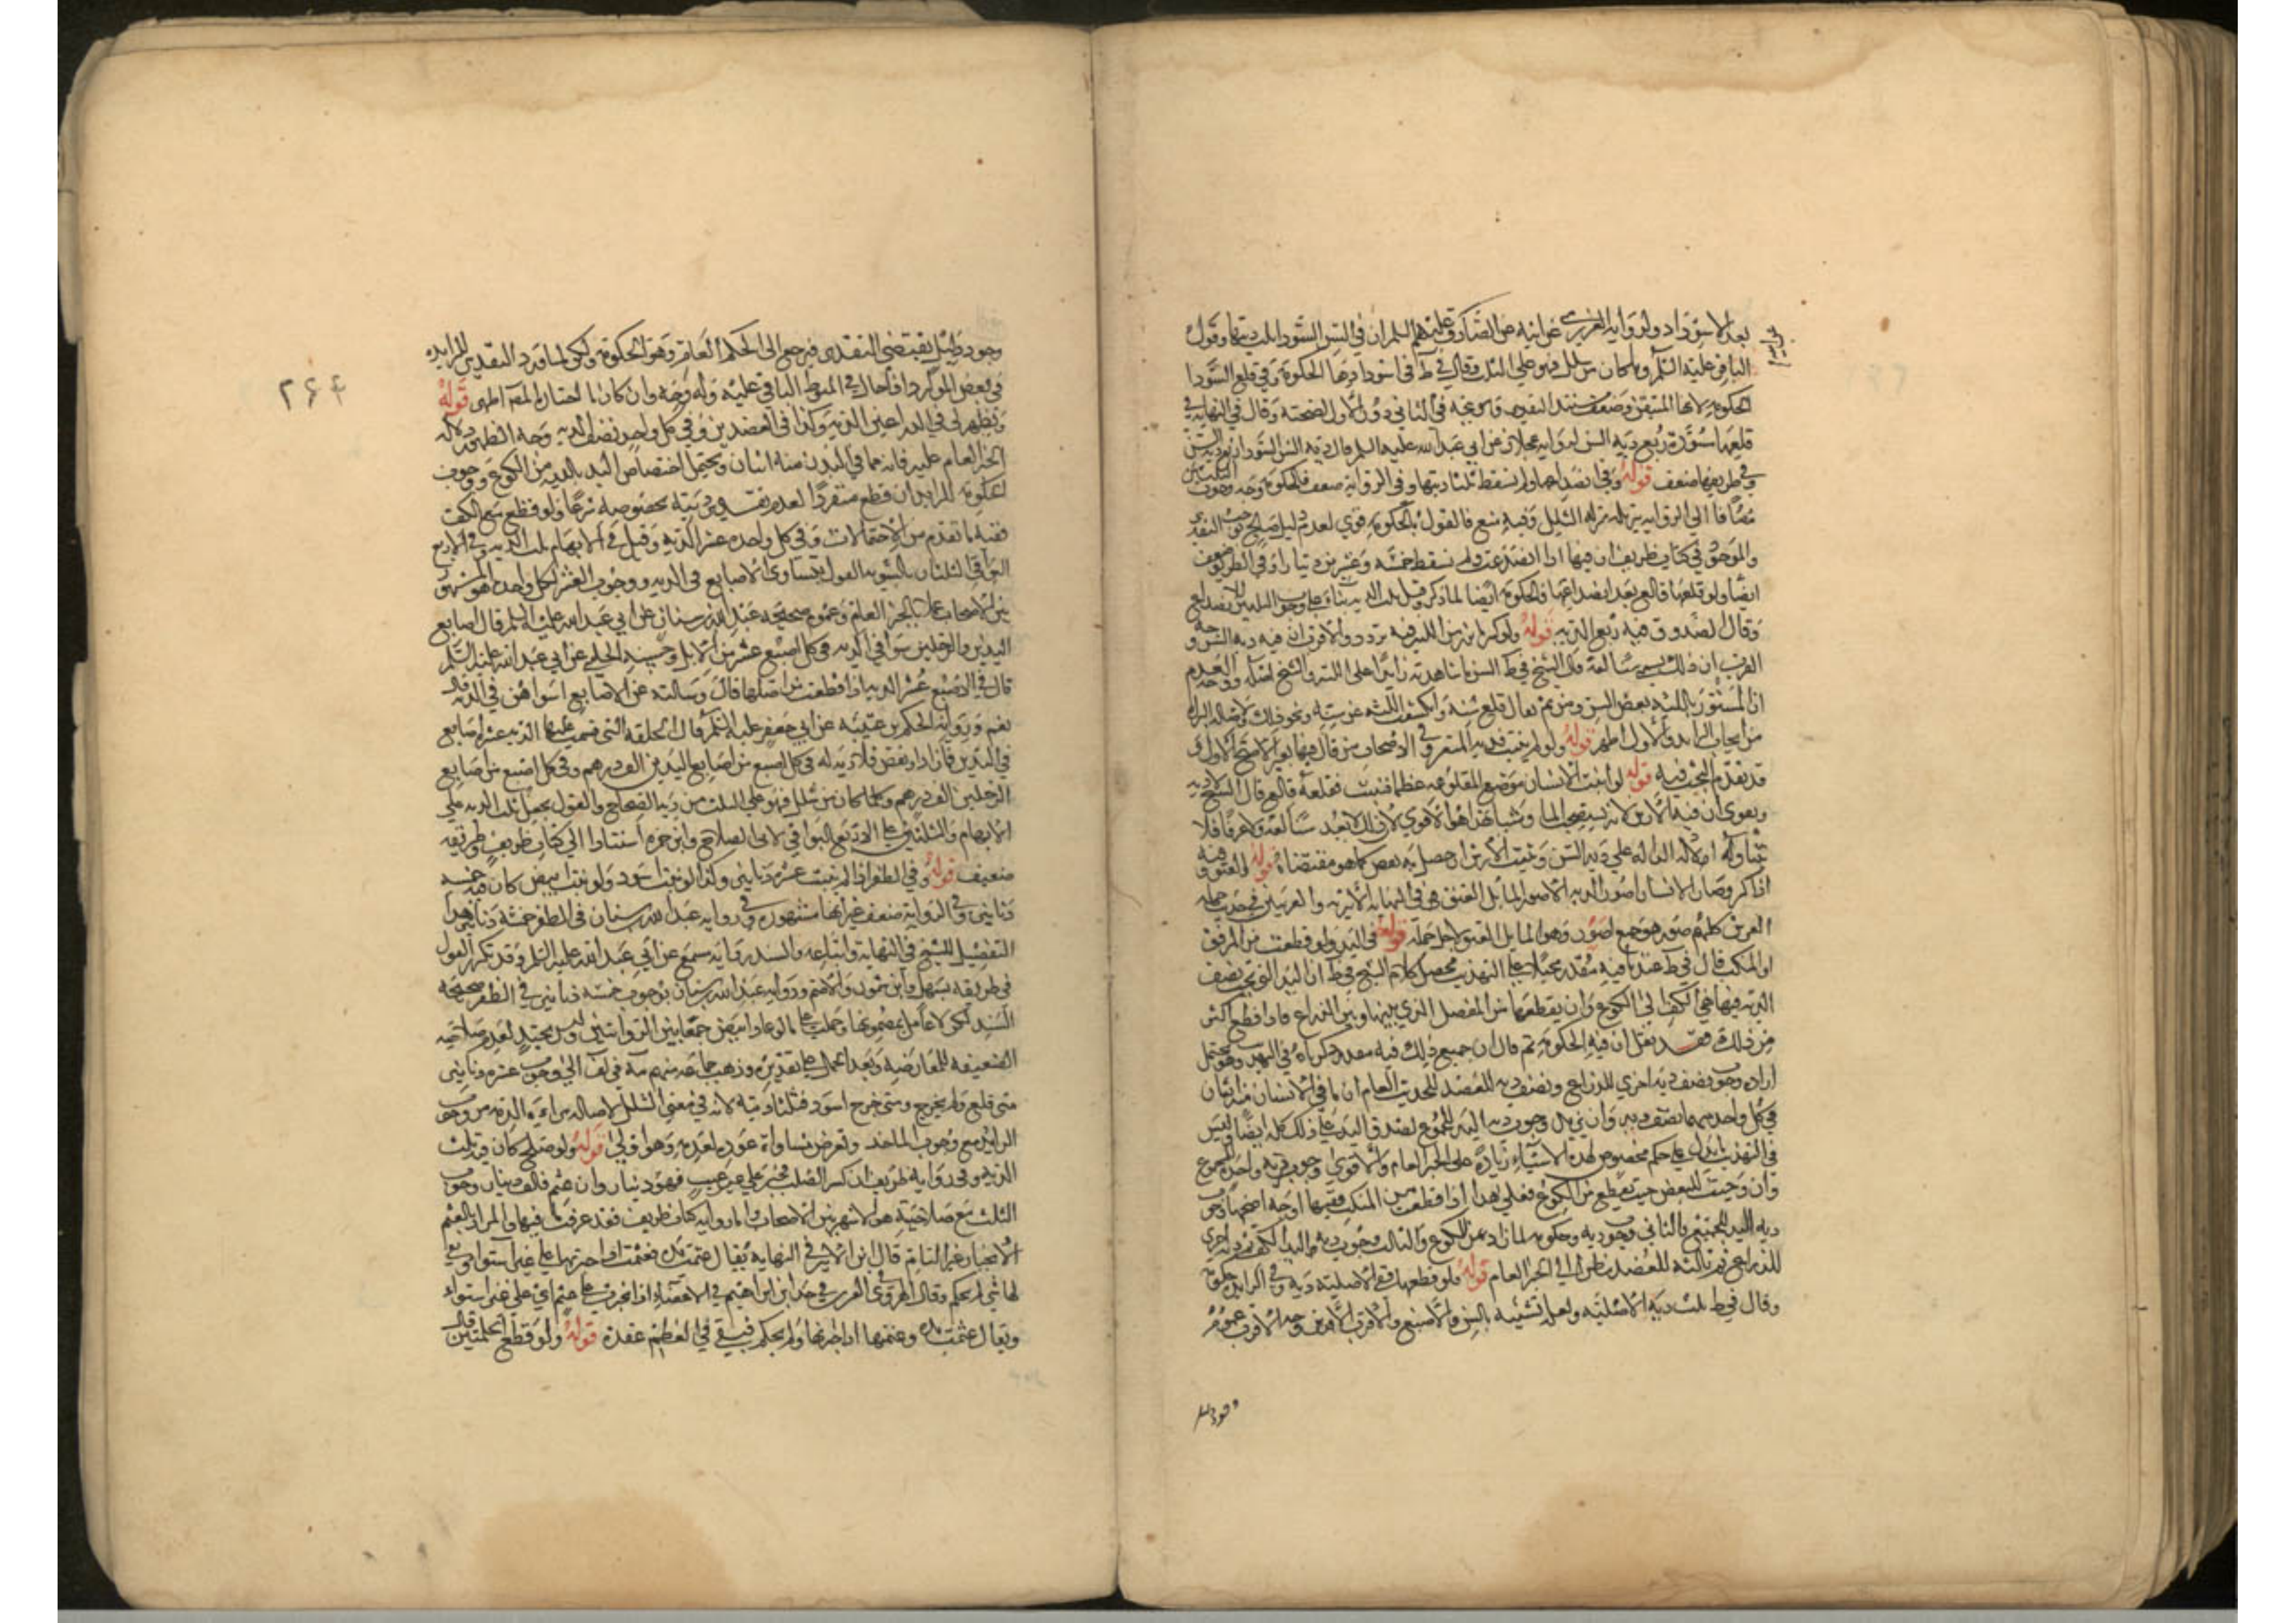 بعد الاسوداد ولرواية العرزمي عن ابيه عن الصادق عليهم السلم ان في السن السودا ثلث ديتها وقول
الباقر عليه السلم وما كان من شلل فهو على الثلث وقال في ط في اسودادها الحكومة وفي قلع السودا
الحكومة لانها المتيقن وضعف سند التقدير وقال في النهاية في
قلعها سودة ربع دية السن لرواية عجلان عن ابي عبد الله عليه السلم قال دية السن السودا ربع دية السن
وفي طريقها ضعف قوله وفي انصداعها ولم تسقط ثلثا ديتها وفي الرواية ضعف فالحكومة وجه وجوب الثلثين
مضافا الى الرواية تنزيله منزلة الشلل وفيه منع فالقول بالحكومة قوي لعدم دليل صالح يوجب التقدير
والموجود في كتاب ظريف ان فيها اذا انصدعت ولم تسقط خمسة وعشرين دينارا وفي الطريق ضعف
ايضا ولو قلعها قالع بعد انصداعها فالحكومة ايضا لما ذكر وقيل ثلث الدية بناء على وجوب الثلثين للانصداع
وقال الصدوق فيه ربع الدية قوله ولو كسر ما برز من اللثة فيه تردد والاقرب ان فيه دية السن وجه
القرب ان ذلك يسمى سنا لغة قال الشيخ في ط السن ما شاهدته زايدا على اللثة والسنخ اصله ووجه العدم
ان المستور باللثة بعض السن ومن ثم يقال قلع سنه وانكشف اللثة عن سنه ونحو ذلك ولاصالة البراءة
من ايجاب الزايد والاول اظهر قوله ولو لم ينبت فدية المثغر وفي الاصحاب من قال فيها بعير الاصح الاول و
قد تقدم البحث فيه قوله لو انبت الانسان موضع المقلوعة عظما فنبت فقلعه قالع قال الشيخ لا دية
ويقوى ان فيه الارش لانه يستصحب الما وشبه هذا هو الاقوى لان ذلك لا يعد سنا لغة ولا عرفا فلا
يتناوله الادلة الدالة على دية السن ويثبت الارش ان حصل به نقص كما هو مقتضاه قوله والعنق وفيه
اذا كسر وصار الانسان اصور الدية الاصور المايل العنق هي في النهاية الاثيرية والغريبين في حديث حملة
العرش كلهم صور هو جمع اصور وهو المايل العنق لاجل حمله قوله في اليد ولو قطعت من المرفق
او المنكب قال في ط عندنا فيه مقدر محيلا على التهذيب محصل كلام الشيخ في ط ان اليد التي تجب نصف
الدية فيها هي الكف الى الكوع وان يقطعها من المفصل الذي بينها وبين الذراع فاذا قطع اكثر
من ذلك فقد نقل ان فيه الحكومة ثم قال ان جميع ذلك فيه مقدر ذكرناه في التهذيب وهو يحتمل
ارادة وجوب نصف دية اخرى للذراع ونصف دية للعضد للحديث العام ان ما في الانسان منه اثنان
في كل واحد منهما نصف دية وان يريد وجوب دية اليد للمجموع لصدق اليد على ذلك كله ايضا وليس
في التهذيب ما يدل على حكم مخصوص لهذه الاشياء زيادة على الخبر العام والاقوى وجوب دية واحدة للمجموع
وان وجبت للبعض حيث يقطع من الكوع فعلى هذا اذا قطعت من المنكب ففيها اوجه اصحها وجوب
دية اليد للجميع والثاني وجوب دية وحكومة لما زاد عن الكوع والثالث وجوب دية اليد الكف ودية اخرى
للذراع ودية ثالثة للعضد نظرا الى الخبر العام قوله فلو قطعها ففي الاصلية دية وفي الزايدة حكومة
وقال في ط ثلث دية الاصلية ولعله تشبيه بالسن والاصبع والاقرب الارش وجه الاقرب عموم
وجود دليل
وجود دليل يقتضي التقدير فيرجع الى الحكم العام وهو الحكومة ولكن لما ورد التقدير للزايدة
في بعض الموارد احال في المبسوط الباقي عليه وله وجه وان كان ما اختاره المصنف اظهر قوله
ويظهر لي في الذراعين الدية وكذا في العضدين وفي كل واحد نصف الدية وجه الظهور دلالة
الخبر العام عليه فانه مما في البدن منه اثنان ويحتمل اختصاص اليد بالدية من الكوع ووجوب
الحكومة للزايد ان قطع منفردا لعدم تقدير ديته بخصوصه شرعا ولو قطع مع الكف
ففيه ما تقدم من الاحتمالات وفي كل واحدة عشر الدية وقيل في الابهام ثلث الدية وفي الاربع
البواقي الثلثان بالسوية القول بتساوي الاصابع في الدية ووجوب العشر لكل واحدة هو المشهور
بين الاصحاب عملا بالخبر العام وعموم صحيحة عبد الله بن سنان عن ابي عبد الله عليه السلم قال اصابع
اليدين والرجلين سوا في الدية في كل اصبع عشر من الابل وحسنة الحلبي عن ابي عبد الله عليه السلم
قال في الاصبع عشر الدية اذا قطعت من اصلها قال وسالته عن الاصابع اسواهن في الدية قال
نعم ورواية الحكم بن عتيبة عن ابي جعفر عليه السلم قال الخلقة التي قسمت عليها الدية عشرة اصابع
في اليدين فما زاد او نقص فلا دية له في كل اصبع من اصابع اليدين الف درهم وفي كل اصبع من اصابع
الرجلين الف درهم وكلما كان من شلل فهو على الثلث من دية الصحاح والقول بجعل ثلث الدية على
الابهام والثلثين على الاربع البواقي لابي الصلاح وابن حمزة استنادا الى كتاب ظريف وطريقه
ضعيف قوله وفي الظفر اذا لم ينبت عشرة دنانير وكذا لو نبت اسود ولو نبت ابيض كان فيه خمسة
دنانير وفي الرواية ضعف غير انها مشهورة وفي رواية عبد الله بن سنان في الظفر خمسة دنانير هذا
التفصيل للشيخ في النهاية واتباعه والمستند رواية مسمع عن ابي عبد الله عليه السلم وقد تكرر القول
في طريقه بسهل وابن شمون والاصم ورواية عبد الله بن سنان بوجوب خمسة دنانير في الظفر صحيحة
السند لكن لا عامل بمضمونها وحملت على ما لو عاد ابيض جمعا بين الروايتين وليس بجيد لعدم صلاحية
الضعيفة للمعارضة وبعد الحمل على تقديره وذهب جماعة منهم المصنف في يع الى وجوب عشرة دنانير
متى قلع ولم يخرج ومتى خرج اسود فثلثا ديته لانه في معنى الشلل لاصالة براءة الذمة من وجوب
الزايد مع وجوب الماخذ وتعرض مساواة عوده لعدمه وهو اقوى قوله ولو صلح كان فيه ثلث
الدية وفي رواية ظريف ان كسر الصلب فجبر على غير عيب فهو دينار وان عثم فالف دينار وجوب
الثلث مع صلاحيته هو الاشهر بين الاصحاب واما رواية كتاب ظريف فقد عرفت ما فيها والمراد بالعثم
الانجبار غير التام قال ابن الاثير في النهاية يقال عثمت يده فعثمت اذا جبرتها على غير استواء وبقي
لها شي لم يحكم وقال الهروي في الغريبين في حديث ابن ابراهيم في الاعضاء اذا انجبرت على عثم اي على غير استواء
ويقال عثمت يده وعثمتها اذا جبرتها ولم يحكم فبقي في العظم عقدة قوله ولو قطع الحلمتين قال
۲۶۴